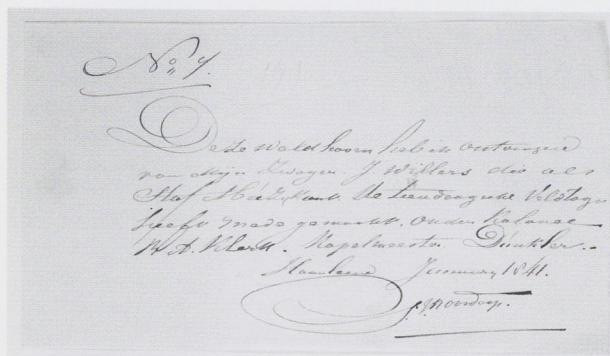 No. 7.
Deze Waldhoorn heb ik ontvangen
van Mijn Zwager J. Willers die als
Staf Muzikant de Tiendaagsche Veldtogt
heeft mede gemaakt. onder Kolonel
Kapelmeester Dunkler.
Haarlem January 1841.